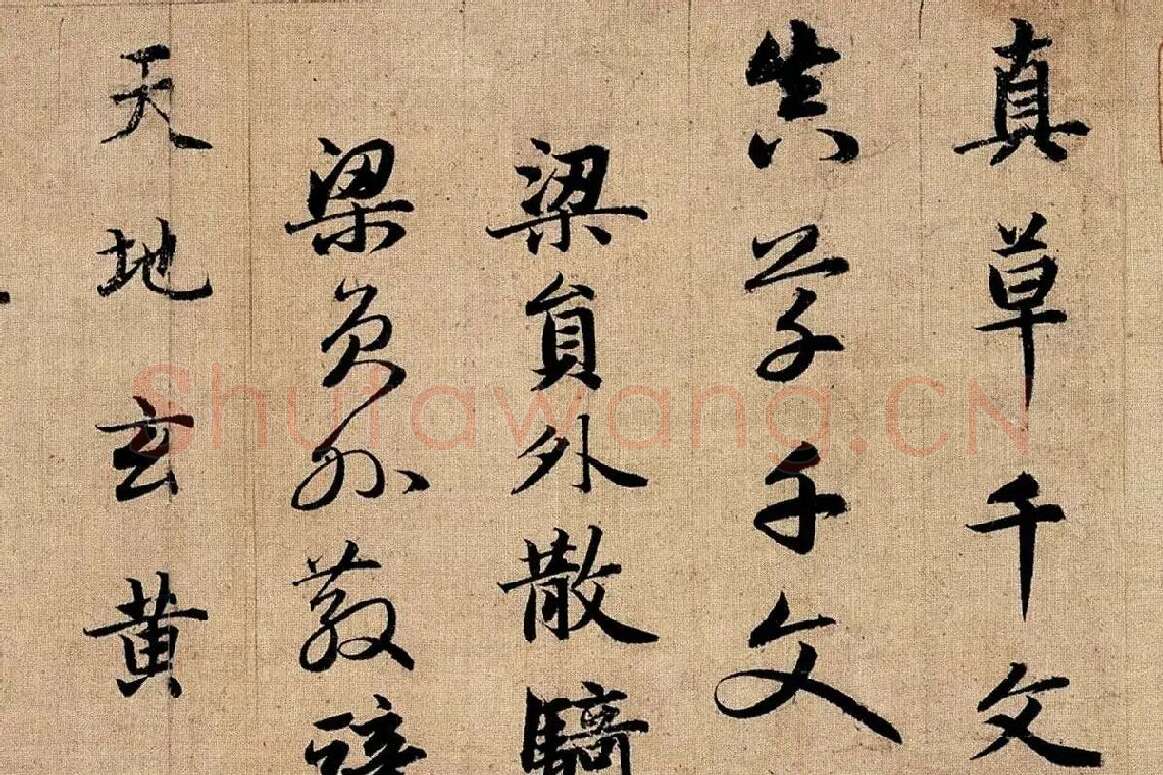 真草千文
真草千文
梁員外散騎
梁員外散騎
天地玄黄
Shufawang.CN